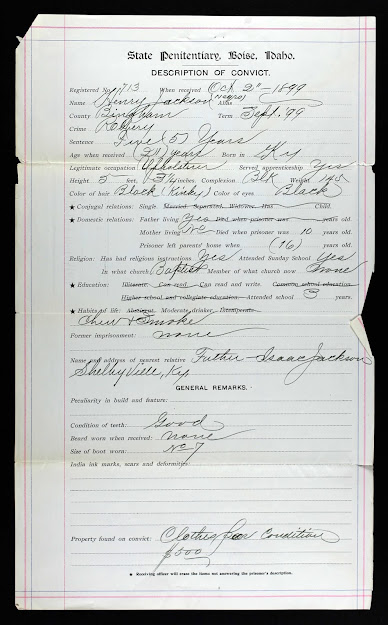 State Penitentiary, Boise, Idaho.
DESCRIPTION OF CONVICT.
Registered No. 713 When received Oct 2" - 1899
Name Henry Jackson (Negro) Alias
County Bingham Term Sept. '99
Crime Robbery
Sentence Five (5) Years
Age when received years Born in Ky
Legitimate occupation Upholsterer Served apprenticeship Yes
Height 5 feet, inches Complexion Blk Weight 145
Color of hair Black (Kinky) Color of eyes Black
★ Conjugal relations: Single. Married. Separated. Widower. Has Child.
★ Domestic relations: Father living Yes Died when prisoner was years old.
Mother living No Died when prisoner was 10 years old.
Prisoner left parents' home when (16) years old.
Religion: Has had religious instructions Yes Attended Sunday School Yes
In what church Baptist Member of what church now None
★ Education: Illiterate. Can read. Can read and write. Common school education.
Higher school and collegiate education. Attended school 3 years.
★ Habits of life: Abstinent. Moderate drinker. Intemperate.
Chew & Smoke
Former imprisonment: none
Name and address of nearest relative Father - Isaac Jackson
Shelbyville, Ky.
GENERAL REMARKS.
Peculiarity in build and feature:
Condition of teeth: Good
Beard worn when received: none
Size of boot worn: No 7
India ink marks, scars and deformities:
Property found on convict: Clothes poor Condition
★ Receiving officer will erase the items not answering the prisoner's description.